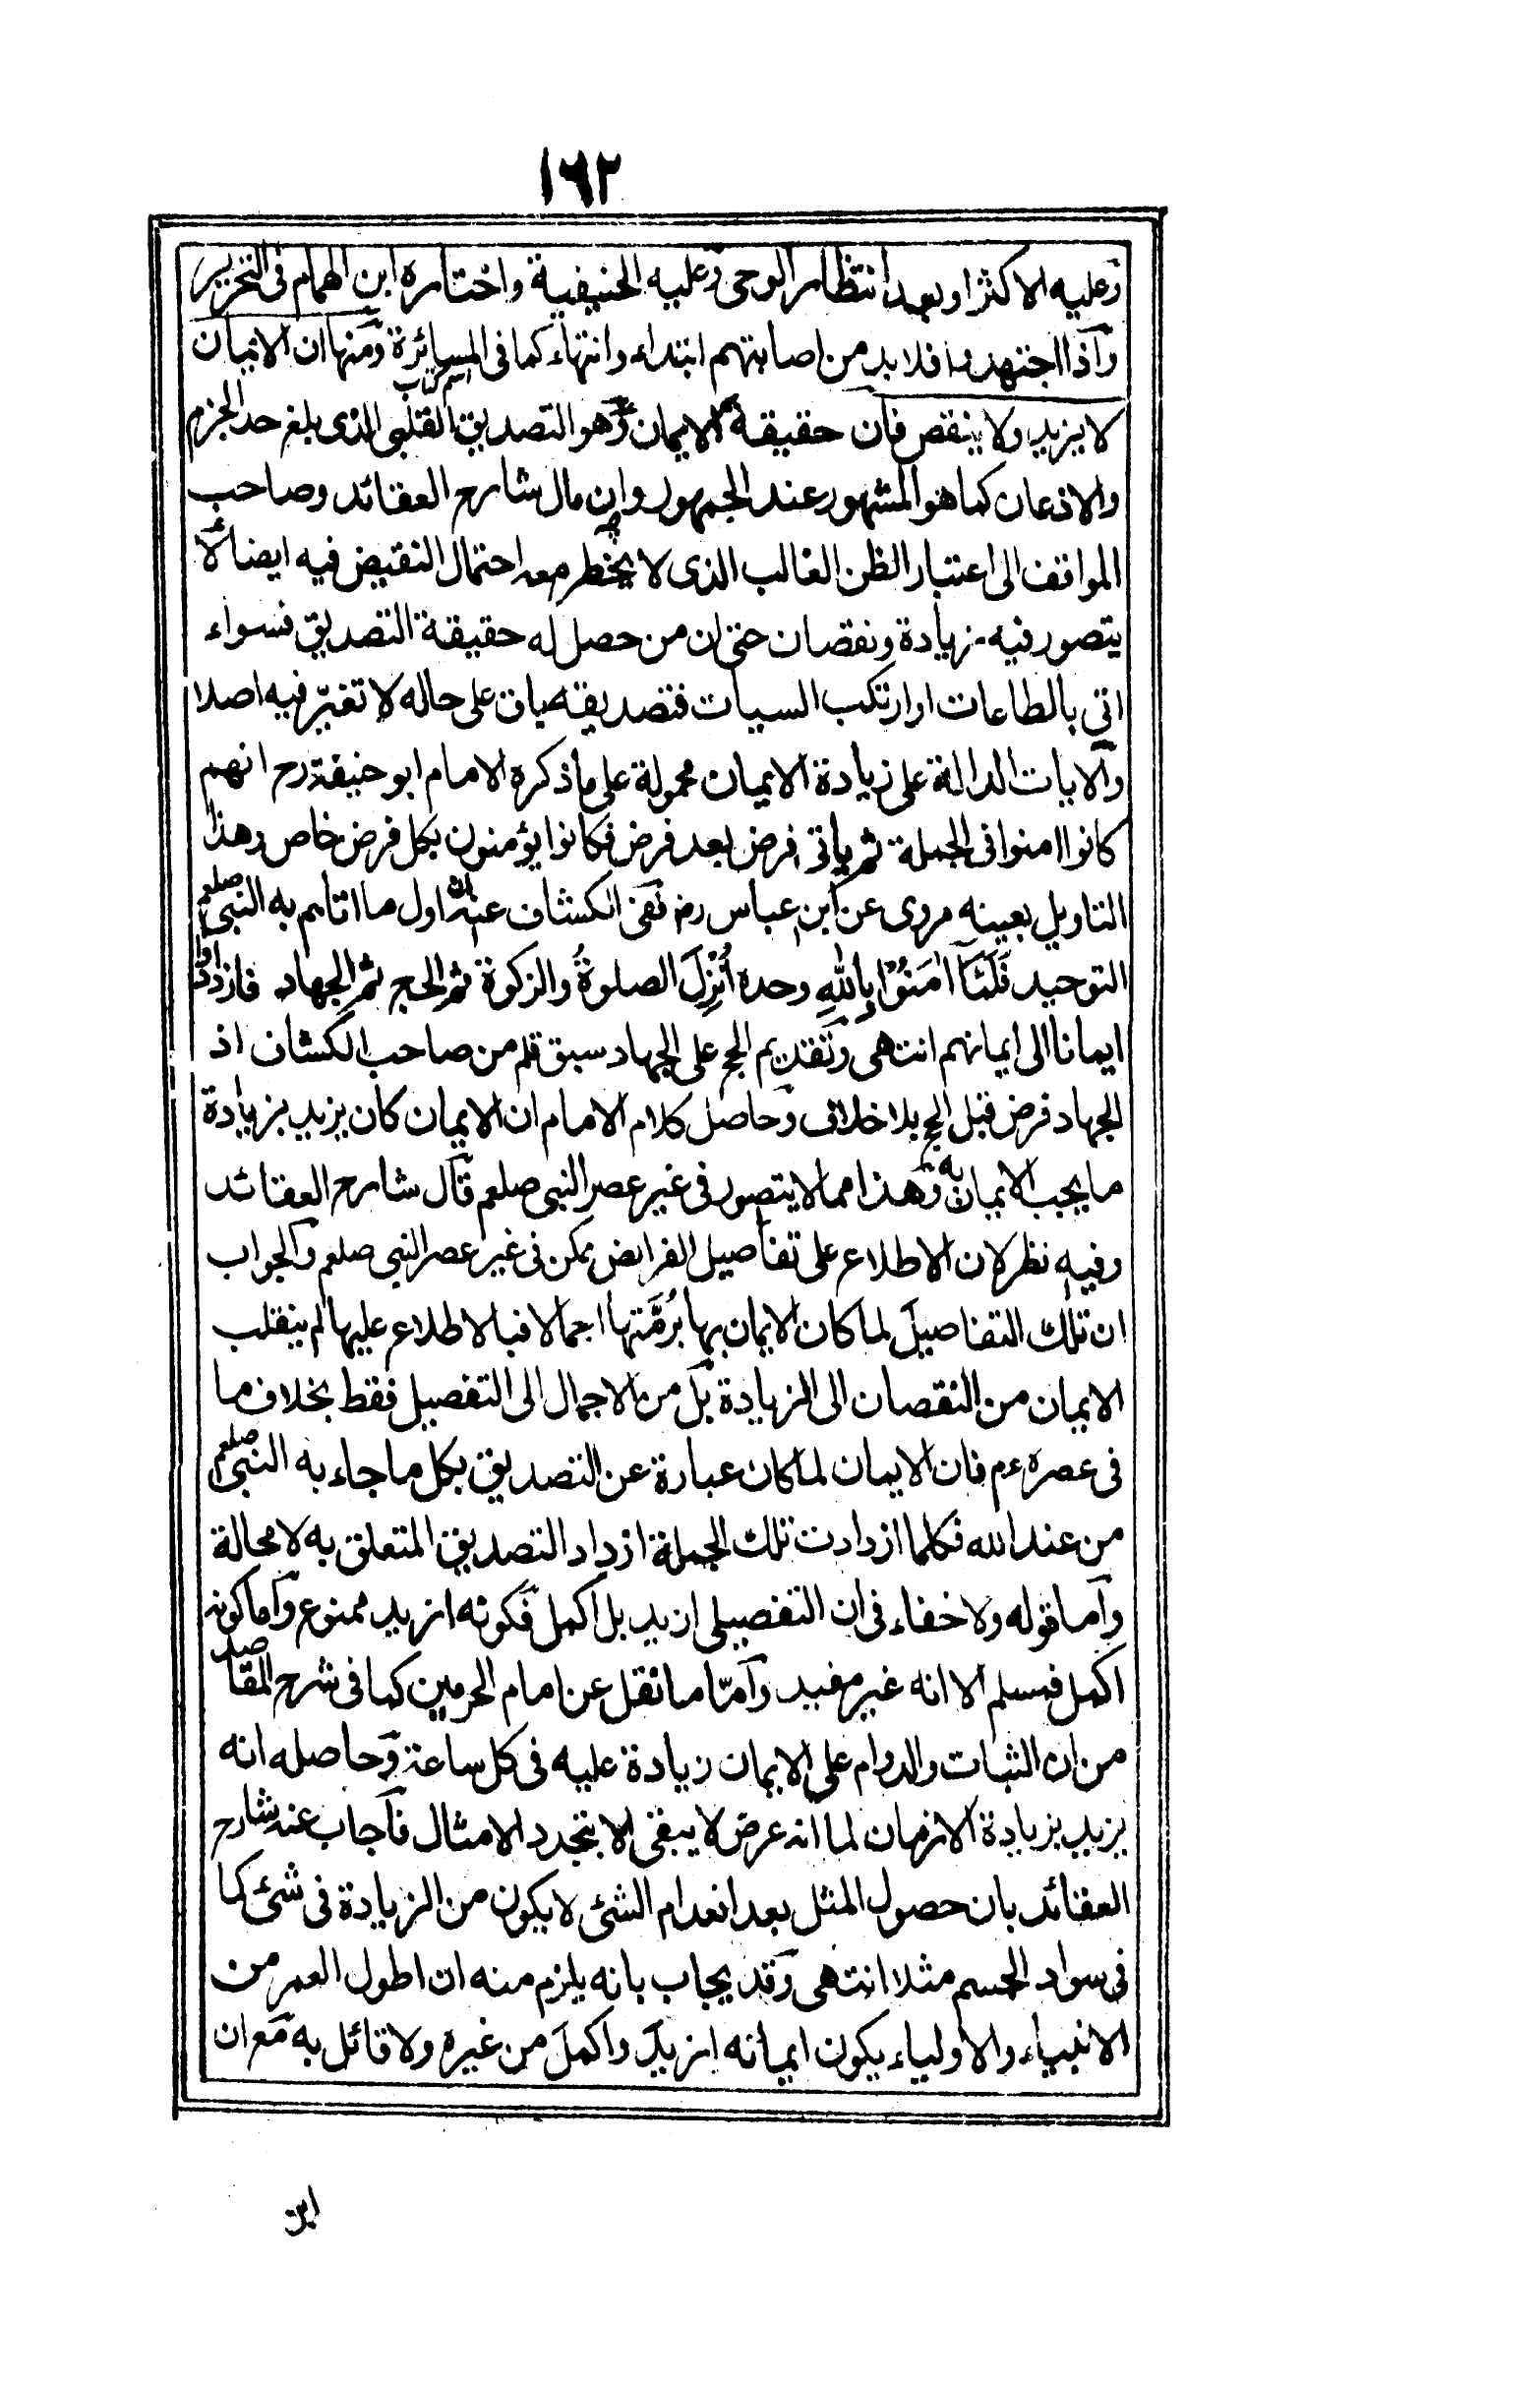 ١٦٢
وعليه الاكثر او بعد انتظار الوحى وعليه الحنيفية واختاره ابن الهمام فى التحرير
واذا اجتهدوا فلابد من اصابتهم ابتداء وانتهاء كما فى المسائرة ومنها ان الايمان
لا يزيد ولا ينقص فان حقيقة الايمان وهو التصديق القلبى الذى بلغ حد الجزم
والاذعان كما هو المشهور عند الجمهور وان مال شارح العقائد وصاحب
المواقف الى اعتبار الظن الغالب الذى لا يخطر معه احتمال النقيض فيه ايضا لا
يتصور فيه زيادة ونقصان حتى ان من حصل له حقيقة التصديق فسواء
اتى بالطاعات او ارتكب السيات فتصديقه باق على حاله لا تغيّر فيه اصلا
والايات الدالة على زيادة الايمان محمولة على ما ذكره الامام ابو حنيفة رح انهم
كانوا امنوا فى الجملة ثم ياتى فرض بعد فرض فكانوا يؤمنون بكل فرض خاص وهذا
التاويل بعينه مروى عن ابن عباس رض ففى الكشاف عنه ان اول ما اتاهم به النبى صلعم
التوحيد فَلَمَّا اٰمَنُوْا بِاللّٰهِ وحده اُنْزِلَ الصلوةُ والزكوة ثم الحج ثم الجهاد فازدادوا
ايمانا الى ايمانهم انتهى وتقديم الحج على الجهاد سبق قلم من صاحب الكشاف اذ
الجهاد فرض قبل الحج بلا خلاف وحاصل كلام الامام ان الايمان كان يزيد بزيادة
ما يجب الايمان به وهذا مما لا يتصور فى غير عصر النبى صلعم قال شارح العقائد
وفيه نظر لان الاطلاع على تفاصيل الفرائض ممكن فى غير عصر النبى صلعم والجواب
ان تلك التفاصيلَ لما كان الايمان بها برُمَّتها اجمالا فبالاطلاع عليها لم ينقلب
الايمان من النقصان الى الزيادة بل من الاجمال الى التفصيل فقط بخلاف ما
فى عصره ءم فان الايمان لما كان عبارة عن التصديق بكل ما جاء به النبى صلعم
من عند الله فكلما ازدادت تلك الجملة ازداد التصديق المتعلق به لا محالة
واما قوله ولا خفاء فى ان التفصيلى ازيد بل اكمل فكونه ازيد ممنوع واما كونه
اكمل فمسلم الا انه غير مفيد وامّا ما نقل عن امام الحرمين كما فى شرح المقاصد
من ان الثبات والدوام على الايمان زيادة عليه فى كل ساعة وحاصله انه
يزيد بزيادة الازمان لما انه عرض لا يبقى الا بتجدد الامثال فاجاب عنه شارح
العقائد بان حصول المثل بعد انعدام الشئ لا يكون من الزيادة فى شئ كما
فى سواد الجسم مثلا انتهى وقد يجاب بانه يلزم منه ان اطول العمر من
الانبياء والاولياء يكون ايمانه ازيد واكمل من غيره ولا قائل به مع ان
ابن